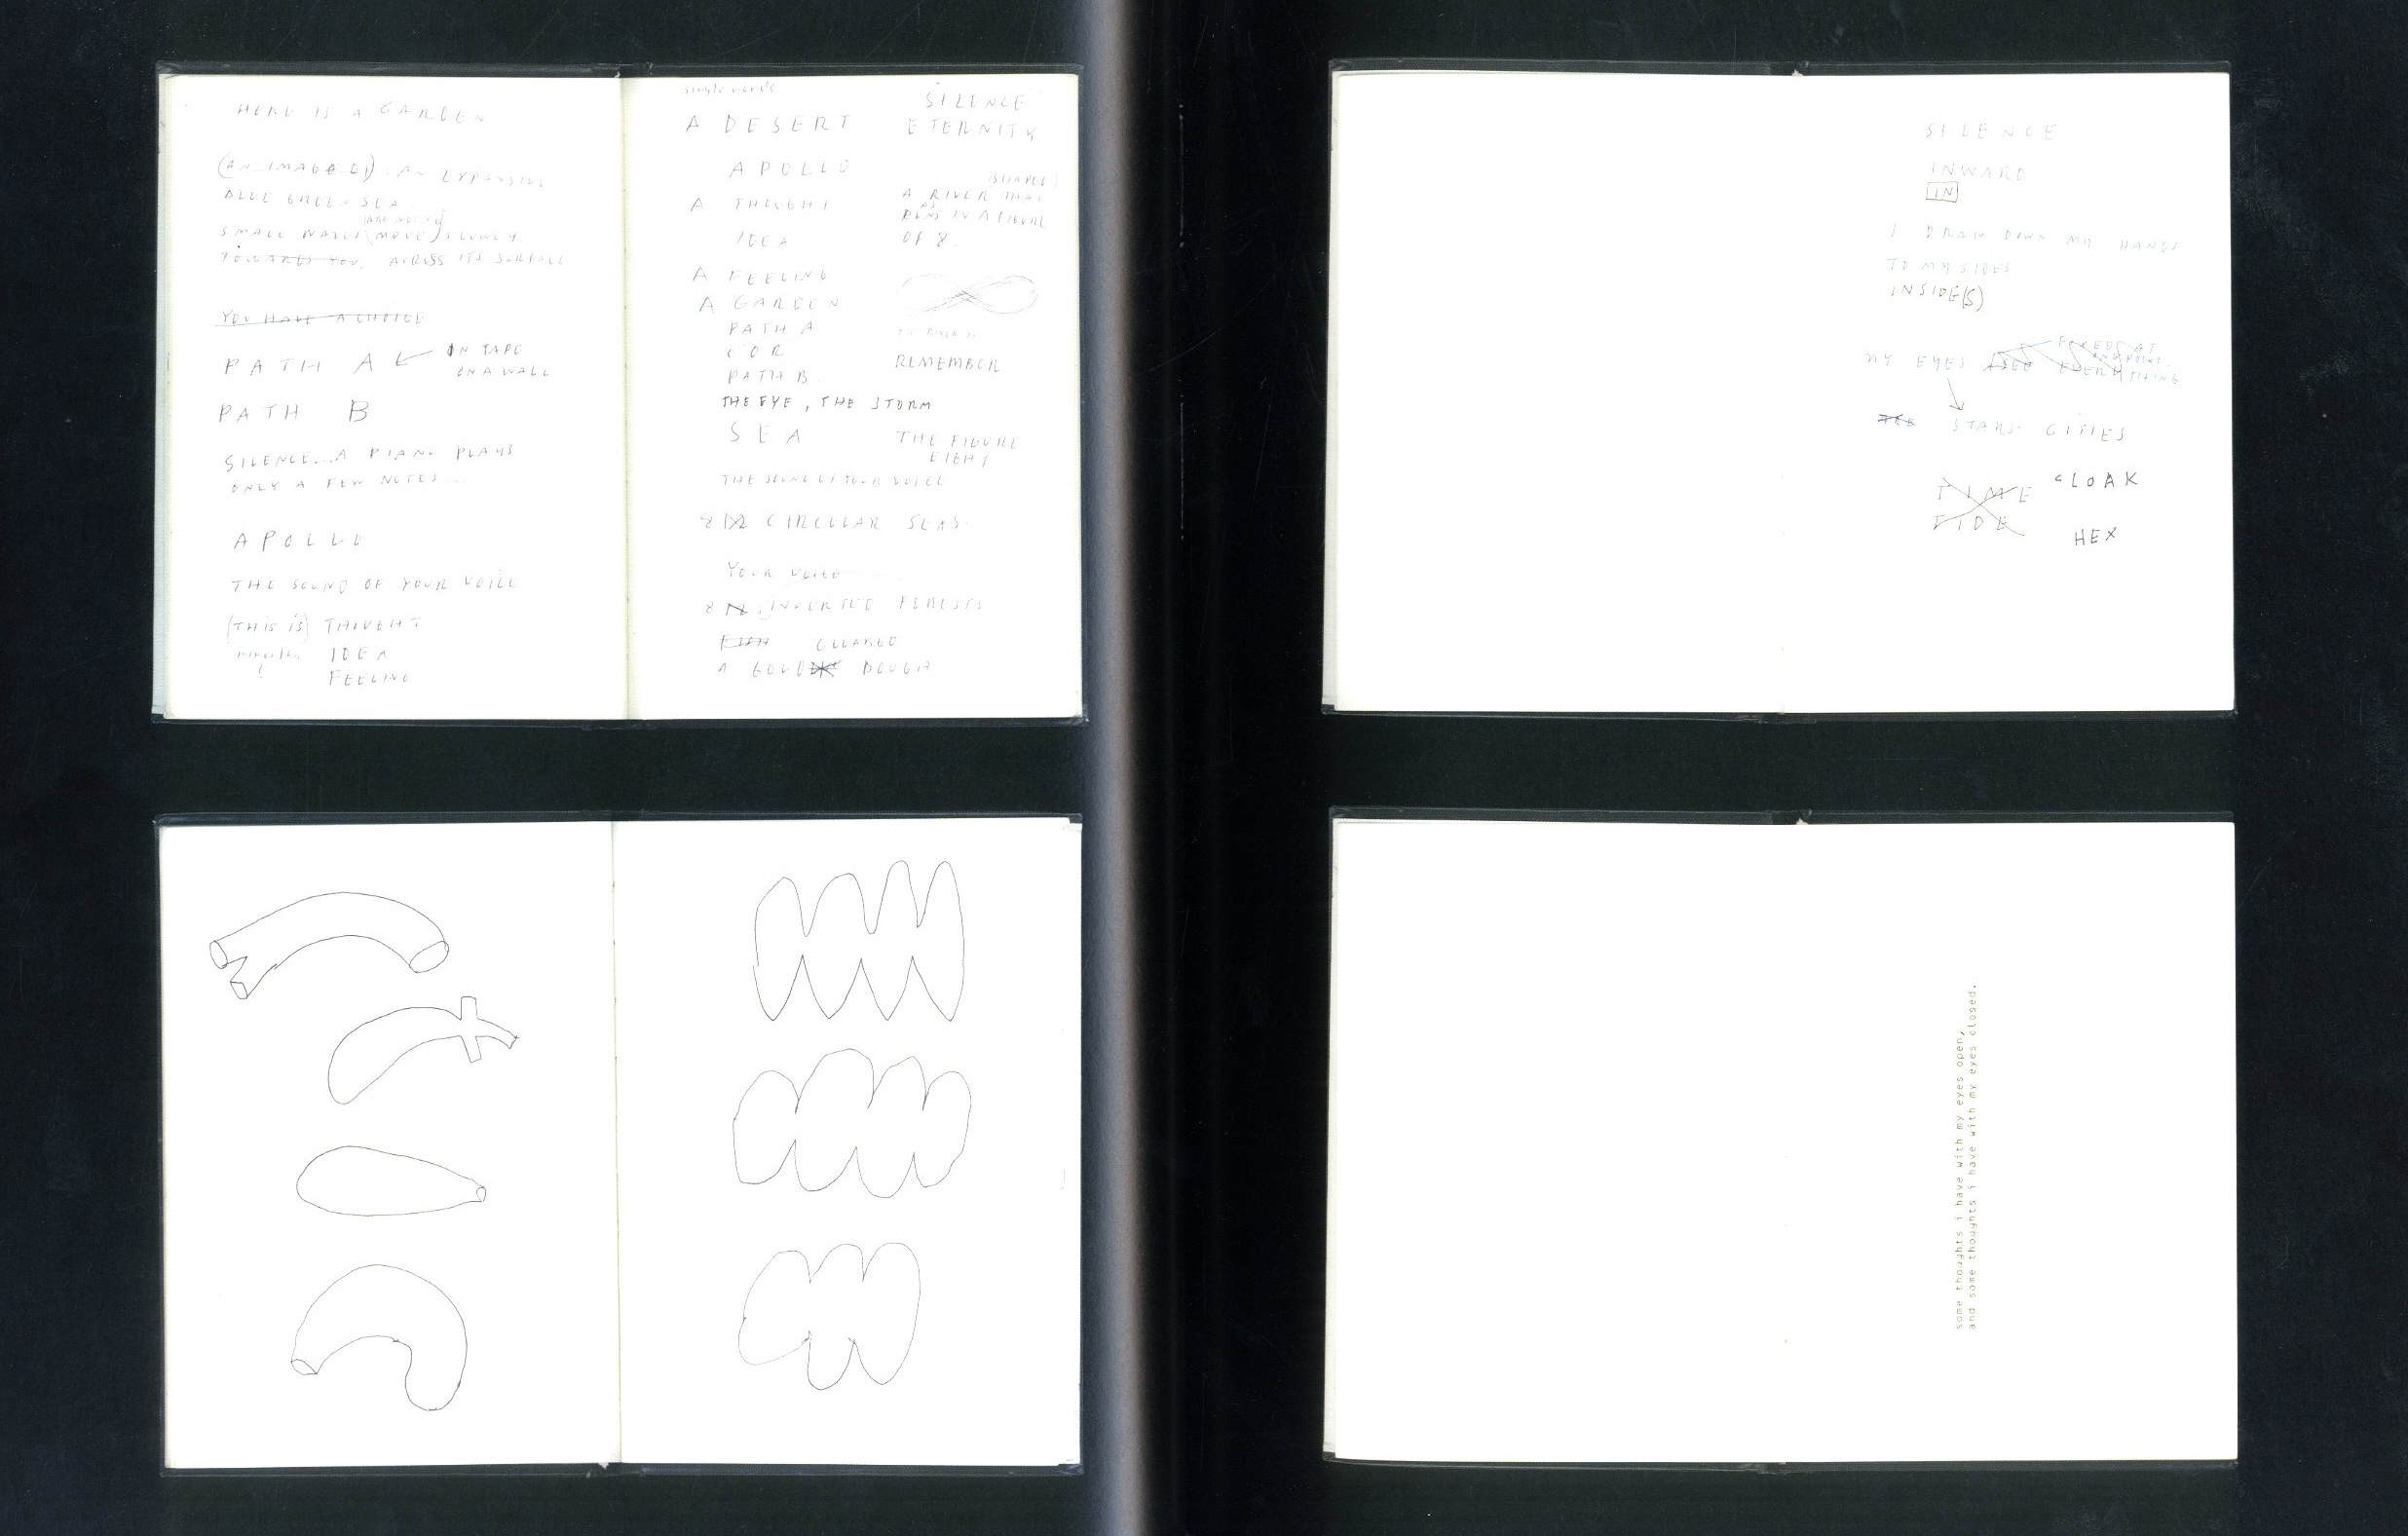 HERE IS A GARDEN
(AN IMAGE OF) AN EXPANSIVE
BLUE GREEN SEA.
(ARE MOVING)
SMALL WAVES (MOVE) SLOWLY
TOWARDS YOU, ACROSS ITS SURFACE
YOU HAVE A CHOICE
PATH A ← ON TAPE
ON A WALL
PATH B
SILENCE...A PIANO PLAYS
ONLY A FEW NOTES....
APOLLO
THE SOUND OF YOUR VOICE
(THIS IS) THOUGHT
IDEA
FEELING
single words
A DESERT
APOLLO
A THOUGHT
IDEA
A FEELING
A GARDEN
PATH A
(OR
PATH B.
THE EYE, THE STORM
SEA
THE SOUND OF YOUR VOICE
8 CIRCULAR SEAS.
YOUR VOICE
8 INVERTED FORESTS
CLEARED
A BOUGH
SILENCE
ETERNITY
(SHAPE)
A RIVER THAT
AS
RUNS IN A FIGURE
OF 8.
REMEMBER
THE FIGURE
EIGHT
SILENCE
INWARD
IN
I DRAW DOWN MY HANDS
TO MY SIDES
INSIDE(S)
FIXED AT
ONE POINT.
MY EYES EVERYTHING
STARS CITIES
TIME CLOAK
TIDE
HEX
some thoughts i have with my eyes open,
and some thoughts i have with my eyes closed.